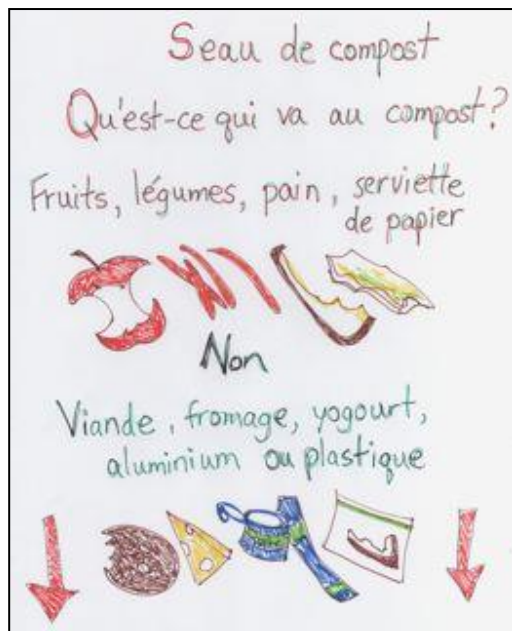 Seau de compost
Qu'est-ce qui va au compost?
Fruits, légumes, pain, serviette
de papier
Non
Viande, fromage, yogourt,
aluminium ou plastique